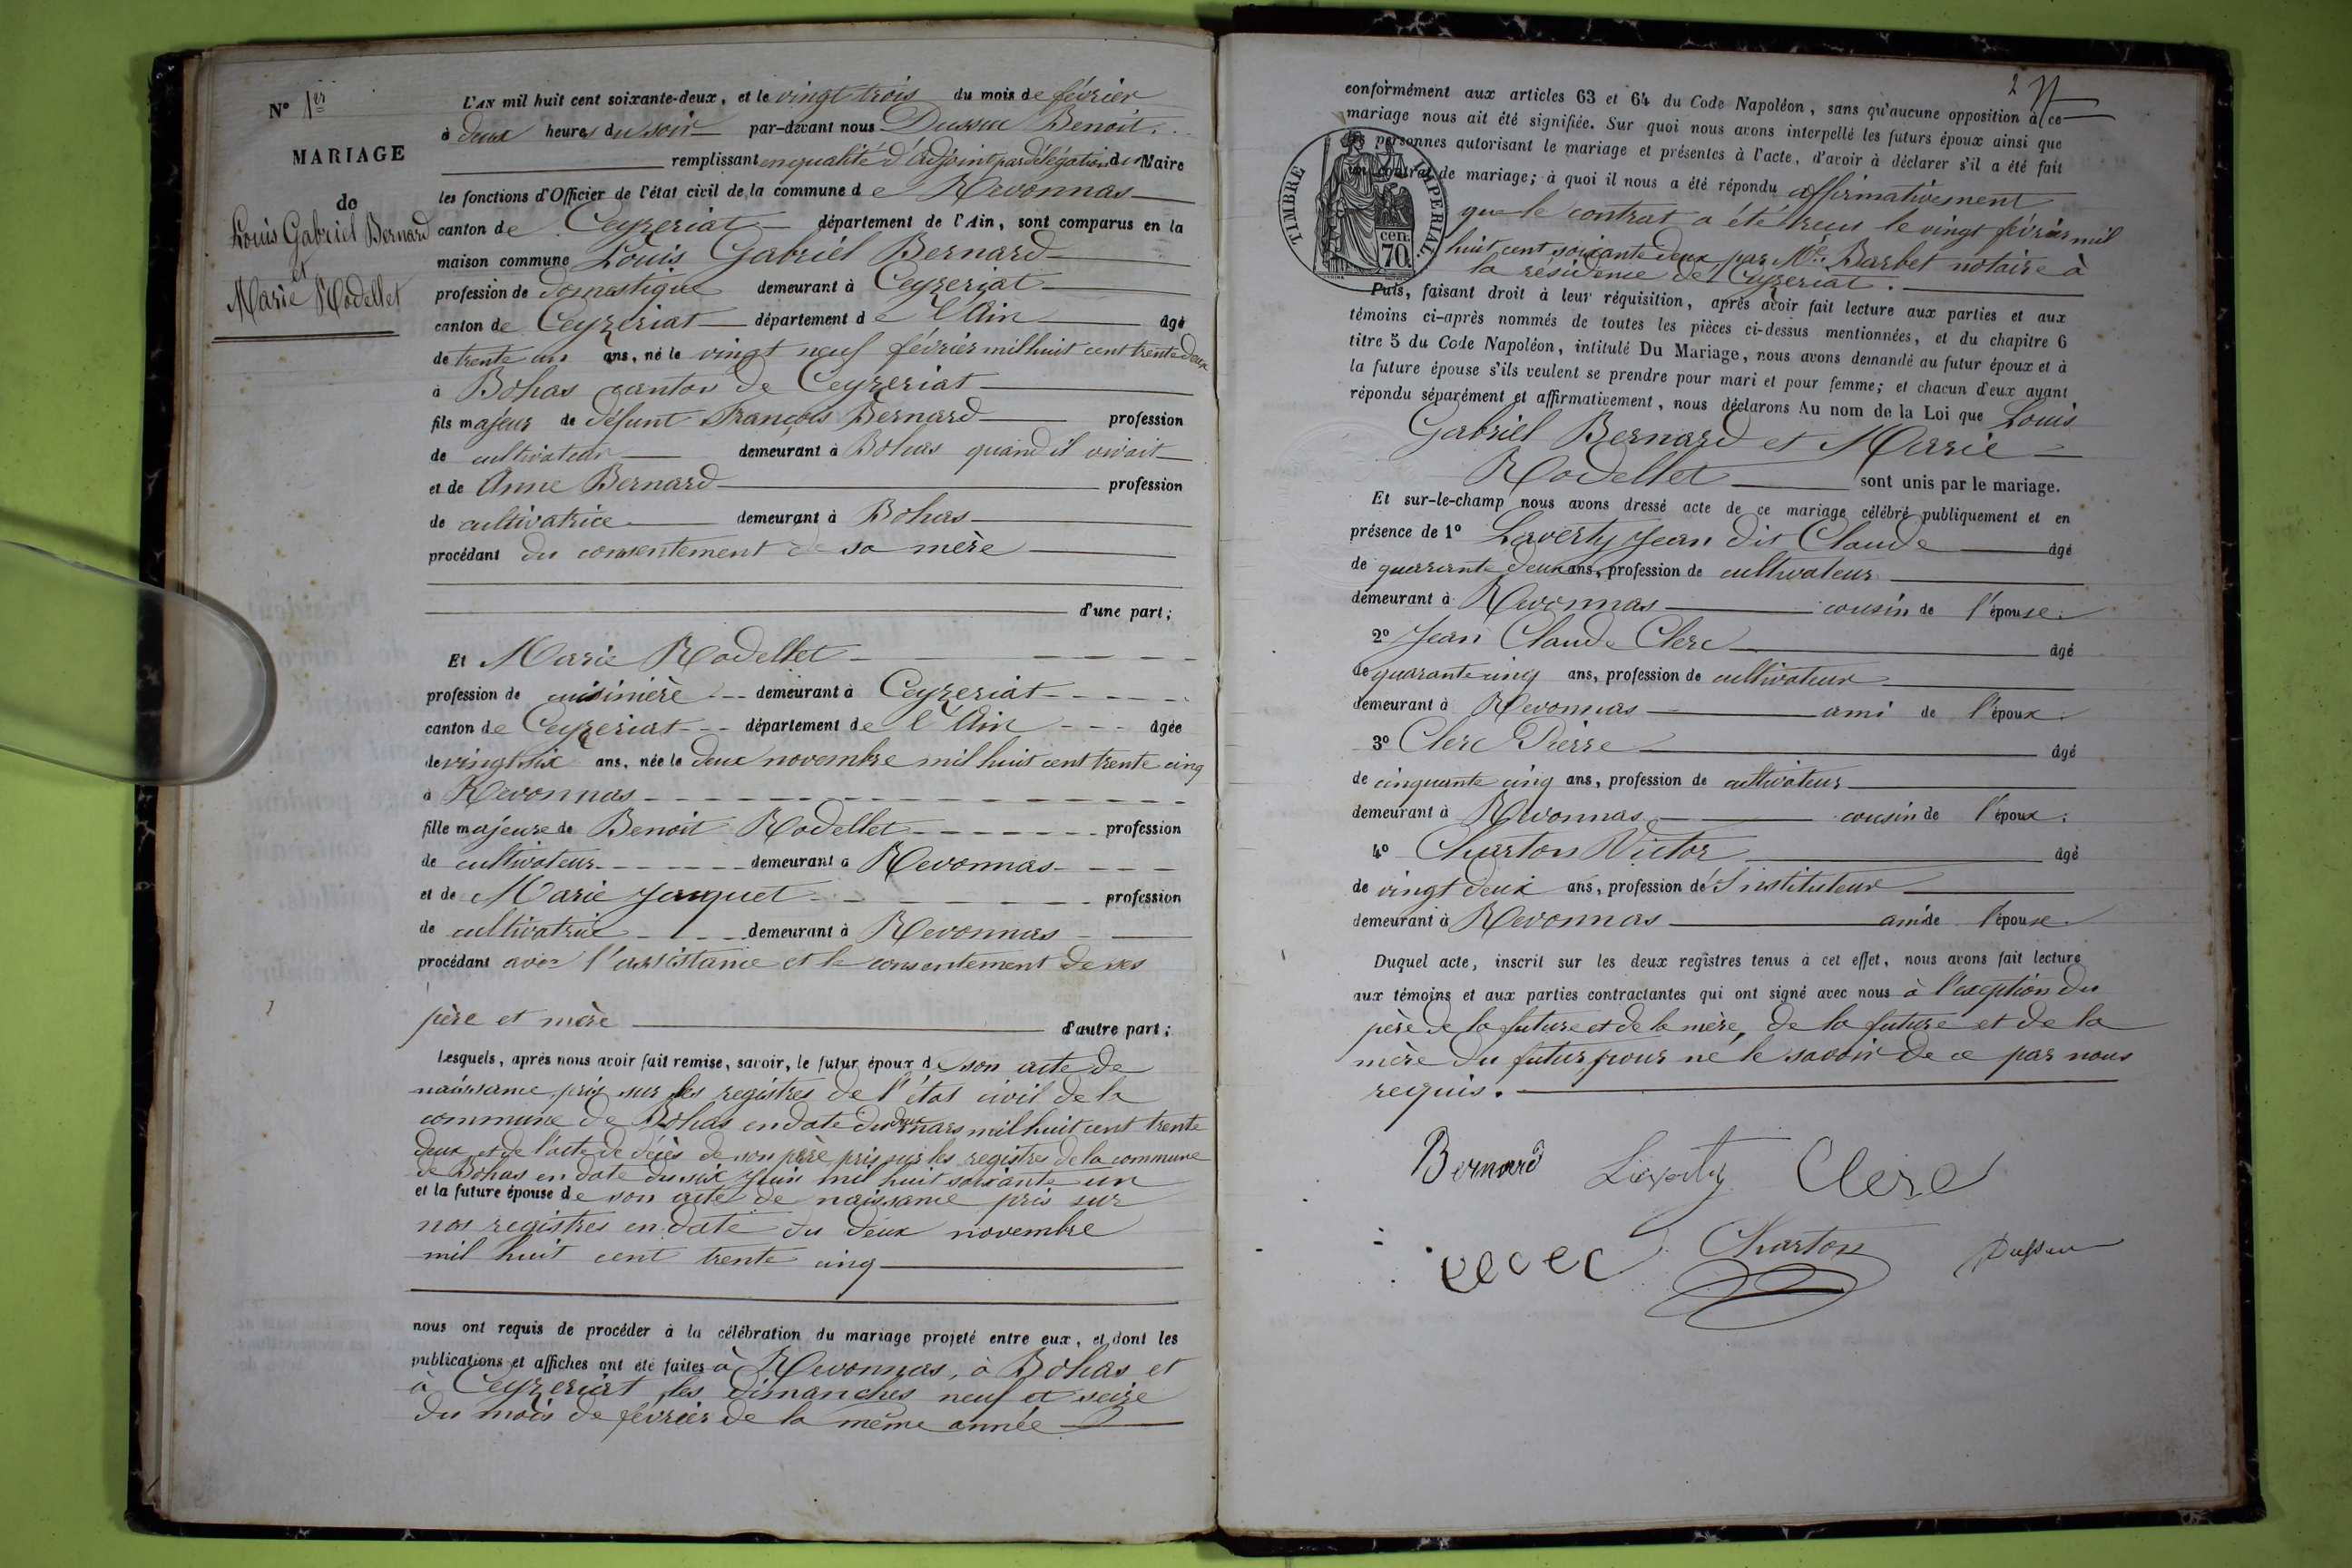 N° 1er
MARIAGE
de
Louis Gabriel Bernard
et
Marie Rodellet
L'AN mil huit cent soixante-deux, et le vingt trois du mois de février
à deux heures du soir par-devant nous Benoit
remplissant en qualité d'adjoint par délégation du Maire
les fonctions d'Officier de l'état civil de la commune de Revonnas
canton de Ceyzeriat département de l'Ain, sont comparus en la
maison commune Louis Gabriel Bernard
profession de domestique demeurant à Ceyzeriat
canton de Ceyzeriat département de l'Ain âgé
de trente un ans, né le vingt neuf février mil huit cent trente deux
à Bohas canton de Ceyzeriat
fils majeur de défunt François Bernard profession
de cultivateur demeurant à Bohas quand il vivait
et de Anne Bernard profession
de cultivatrice demeurant à Bohas
procédant du consentement de sa mère
d'une part;
Et Marie Rodellet
profession de cuisinière demeurant à Ceyzeriat
canton de Ceyzeriat département de l'Ain âgée
de vingt six ans, née le deux novembre mil huit cent trente cinq
à Revonnas
fille majeure de Benoit Rodellet profession
de cultivateur demeurant à Revonnas
et de Marie Jauquet profession
de cultivatrice demeurant à Revonnas
procédant avec l'assistance et le consentement de ses
père et mère d'autre part;
Lesquels, après nous avoir fait remise, savoir, le futur époux de son acte de
naissance pris sur les registres de l'état civil de la
commune de Bohas en date du deux mars mil huit cent trente
deux et de l'acte de décès de son père pris sur les registres de la commune
de Bohas en date du six Juin mil huit soixante un
et la future épouse de son acte de naissance pris sur
nos registres en date du deux novembre
mil huit cent trente cinq
nous ont requis de procéder à la célébration du mariage projeté entre eux, et dont les
publications et affiches ont été faites à Revonnas, à Bohas et
à Ceyzeriat les dimanches neuf et seize
du mois de février de la même année
2
conformément aux articles 63 et 64 du Code Napoléon, sans qu'aucune opposition à ce
mariage nous ait été signifiée. Sur quoi nous avons interpellé les futurs époux ainsi que
les personnes autorisant le mariage et présentes à l'acte, d'avoir à déclarer s'il a été fait
un contrat de mariage; à quoi il nous a été répondu affirmativement
TIMBRE IMPERIAL
cen.
70.
que le contrat a été reçu le vingt février mil
huit cent soixante deux par Mtre Barbet notaire à
la résidence de Ceyzeriat.
Puis, faisant droit à leur réquisition, après avoir fait lecture aux parties et aux
témoins ci-après nommés de toutes les pièces ci-dessus mentionnées, et du chapitre 6
titre 5 du Code Napoléon, intitulé Du Mariage, nous avons demandé au futur époux et à
la future épouse s'ils veulent se prendre pour mari et pour femme; et chacun d'eux ayant
répondu séparément et affirmativement, nous déclarons Au nom de la Loi que Louis
Gabriel Bernard et Marie
Rodellet sont unis par le mariage.
Et sur-le-champ nous avons dressé acte de ce mariage célébré publiquement et en
présence de 1° Laverty Jean dit Claude âgé
de quarante deux ans, profession de cultivateur
demeurant à Revonnas cousin de l'épouse.
2° Jean Claude Clerc âgé
de quarante cinq ans, profession de cultivateur
demeurant à Revonnas ami de l'époux.
3° Clerc Pierre âgé
de cinquante cinq ans, profession de cultivateur
demeurant à Revonnas cousin de l'époux;
4° Charton Victor âgé
de vingt deux ans, profession d'Instituteur
demeurant à Revonnas ami de l'épouse
Duquel acte, inscrit sur les deux registres tenus à cet effet, nous avons fait lecture
aux témoins et aux parties contractantes qui ont signé avec nous à l'exception du
père de la future et de la mère, de la future et de la
mère du futur pour ne le savoir de ce par nous
requis.
Bernard Laverty Clerc
Charton